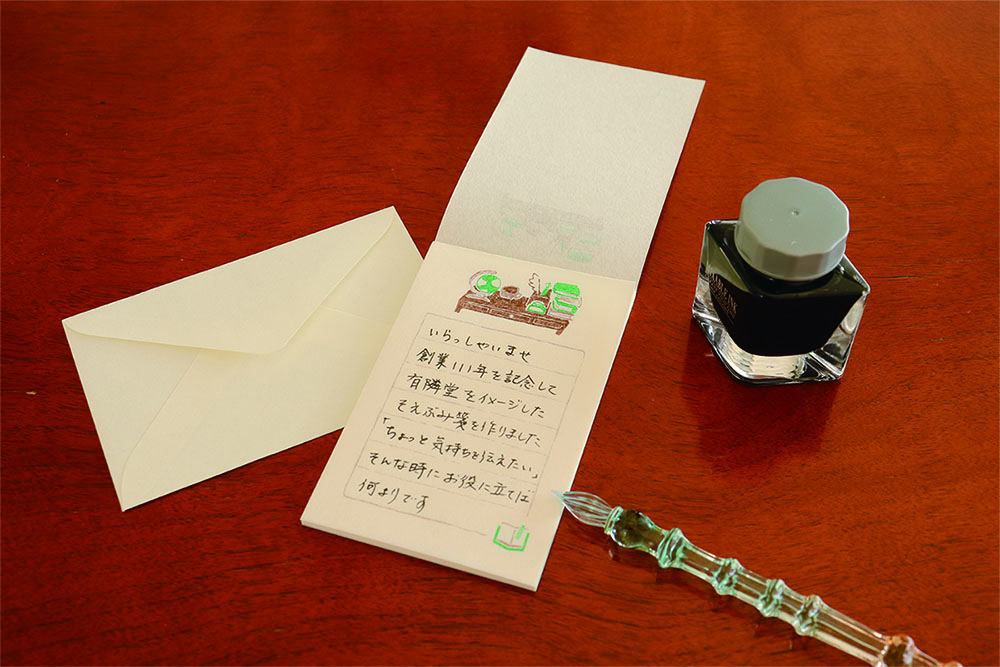 いらっしゃいませ
創業111年を記念して
有隣堂をイメージした
そえぶみ箋を作りました
「ちょっと気持ちを伝えたい」
そんな時にお役に立てば
何よりです